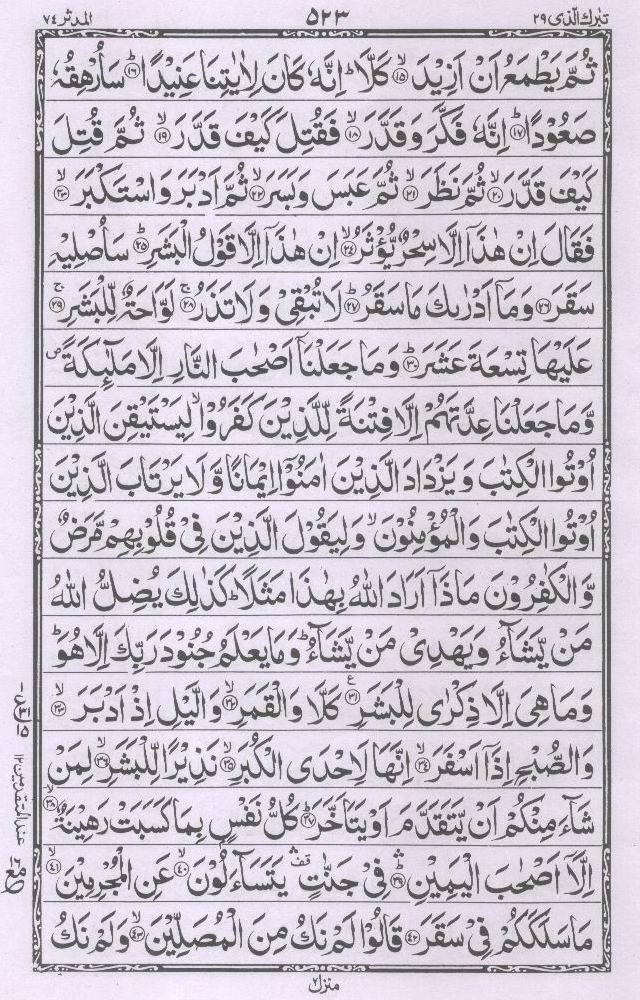 تبٰرك الّذی ٢٩ ٥٢٣ المدثر ٧٤
ثُمَّ يَطْمَعُ اَنْ اَزِيْدَ ۙ﴿١٥﴾ كَلَّا ؕ اِنَّهٗ كَانَ لِاٰيٰتِنَا عَنِيْدًا ؕ﴿١٦﴾ سَاُرْهِقُهٗ
صَعُوْدًا ؕ﴿١٧﴾ اِنَّهٗ فَكَّرَ وَ قَدَّرَ ۙ﴿١٨﴾ فَقُتِلَ كَيْفَ قَدَّرَ ۙ﴿١٩﴾ ثُمَّ قُتِلَ
كَيْفَ قَدَّرَ ۙ﴿٢٠﴾ ثُمَّ نَظَرَ ۙ﴿٢١﴾ ثُمَّ عَبَسَ وَ بَسَرَ ۙ﴿٢٢﴾ ثُمَّ اَدْبَرَ وَ اسْتَكْبَرَ ۙ﴿٢٣﴾
فَقَالَ اِنْ هٰذَاۤ اِلَّا سِحْرٌ يُّؤْثَرُ ۙ﴿٢٤﴾ اِنْ هٰذَاۤ اِلَّا قَوْلُ الْبَشَرِ ؕ﴿٢٥﴾ سَاُصْلِيْهِ
سَقَرَ ﴿٢٦﴾ وَ مَاۤ اَدْرٰىكَ مَا سَقَرُ ؕ﴿٢٧﴾ لَا تُبْقِيْ وَ لَا تَذَرُ ۚ﴿٢٨﴾ لَوَّاحَةٌ لِّلْبَشَرِ ۚ﴿٢٩﴾
عَلَيْهَا تِسْعَةَ عَشَرَ ؕ﴿٣٠﴾ وَ مَا جَعَلْنَاۤ اَصْحٰبَ النَّارِ اِلَّا مَلٰٓىِٕكَةً ۪
وَّ مَا جَعَلْنَا عِدَّتَهُمْ اِلَّا فِتْنَةً لِّلَّذِيْنَ كَفَرُوْا ۙ لِيَسْتَيْقِنَ الَّذِيْنَ
اُوْتُوا الْكِتٰبَ وَ يَزْدَادَ الَّذِيْنَ اٰمَنُوْۤا اِيْمَانًا وَّ لَا يَرْتَابَ الَّذِيْنَ
اُوْتُوا الْكِتٰبَ وَ الْمُؤْمِنُوْنَ ۙ وَ لِيَقُوْلَ الَّذِيْنَ فِيْ قُلُوْبِهِمْ مَّرَضٌ
وَّ الْكٰفِرُوْنَ مَاذَاۤ اَرَادَ اللّٰهُ بِهٰذَا مَثَلًا ؕ كَذٰلِكَ يُضِلُّ اللّٰهُ
مَنْ يَّشَآءُ وَ يَهْدِيْ مَنْ يَّشَآءُ ؕ وَ مَا يَعْلَمُ جُنُوْدَ رَبِّكَ اِلَّا هُوَ ؕ
وَ مَا هِيَ اِلَّا ذِكْرٰى لِلْبَشَرِ ﴿٣١﴾ كَلَّا وَ الْقَمَرِ ۙ﴿٣٢﴾ وَ الَّيْلِ اِذْ اَدْبَرَ ۙ﴿٣٣﴾
وَ الصُّبْحِ اِذَاۤ اَسْفَرَ ۙ﴿٣٤﴾ اِنَّهَا لَاِحْدَى الْكُبَرِ ۙ﴿٣٥﴾ نَذِيْرًا لِّلْبَشَرِ ۙ﴿٣٦﴾ لِمَنْ
شَآءَ مِنْكُمْ اَنْ يَّتَقَدَّمَ اَوْ يَتَاَخَّرَ ؕ﴿٣٧﴾ كُلُّ نَفْسٍۭ بِمَا كَسَبَتْ رَهِيْنَةٌ ۙ﴿٣٨﴾
اِلَّاۤ اَصْحٰبَ الْيَمِيْنِ ؕۛ﴿٣٩﴾ فِيْ جَنّٰتٍ ۛ۫ يَتَسَآءَلُوْنَ ۙ﴿٤٠﴾ عَنِ الْمُجْرِمِيْنَ ۙ﴿٤١﴾
مَا سَلَكَكُمْ فِيْ سَقَرَ ﴿٤٢﴾ قَالُوْا لَمْ نَكُ مِنَ الْمُصَلِّيْنَ ۙ﴿٤٣﴾ وَ لَمْ نَكُ
منزل ٧